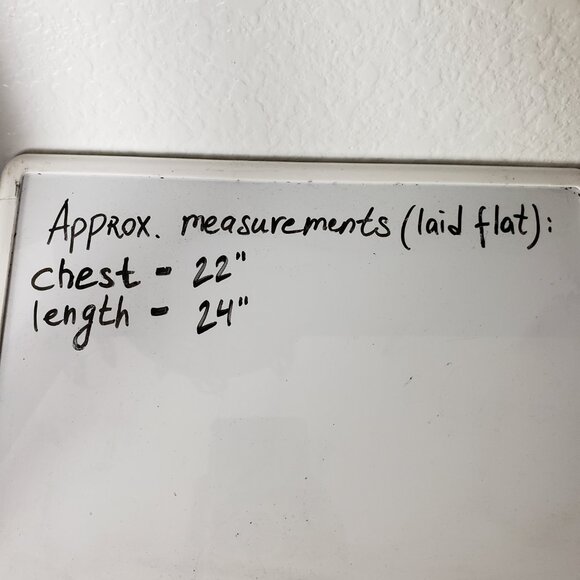 Approx. measurements (laid flat):
chest - 22"
length - 24"